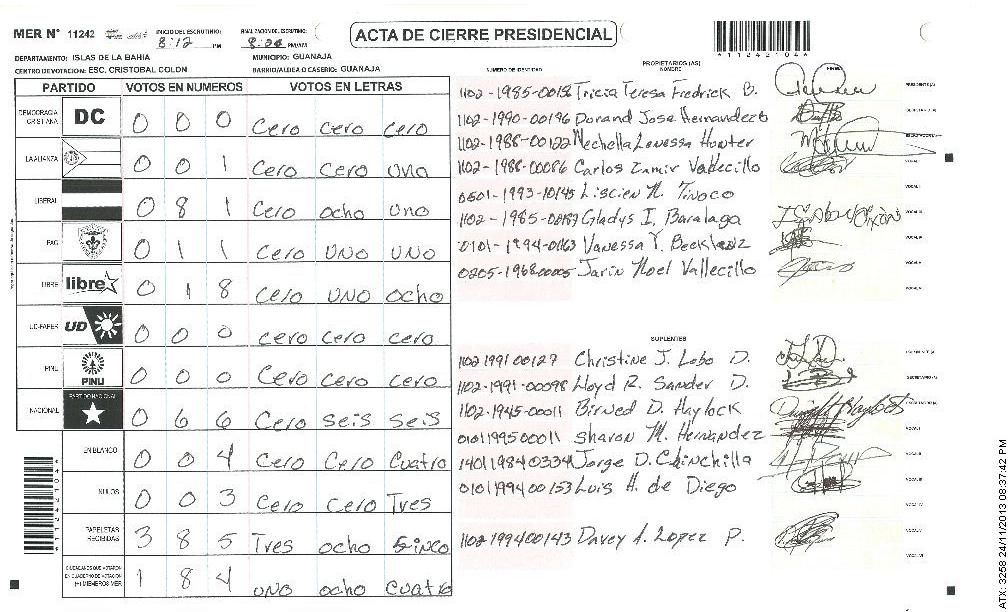 MER N° 11242 INICIO DEL ESCRUTINIO: 8:12 PM FINALIZACION DEL ESCRUTINIO: PM/AM
ACTA DE CIERRE PRESIDENCIAL
11242041
DEPARTAMENTO: ISLAS DE LA BAHIA MUNICIPIO: GUANAJA
CENTRO DE VOTACION: ESC. CRISTOBAL COLON BARRIO/ALDEA O CASERIO: GUANAJA
PARTIDO VOTOS EN NUMEROS VOTOS EN LETRAS
DEMOCRACIA CRISTIANA DC 0 0 0 Cero Cero Cero
LA ALIANZA 0 0 1 Cero Cero Uno
LIBERAL 0 8 1 Cero ocho Uno
PAC 0 1 1 Cero UNO UNO
LIBRE libre 0 1 8 Cero UNO ocho
UD-FAPER UD 0 0 0 Cero Cero Cero
PINU PINU 0 0 0 Cero Cero Cero
NACIONAL PARTIDO NACIONAL 0 6 6 Cero seis seis
EN BLANCO 0 0 4 Cero Cero Cuatro
NULOS 0 0 3 Cero Cero Tres
PAPELETAS RECIBIDAS 3 8 5 Tres ocho Sinco
CIUDADANOS QUE VOTARON EN CUADERNO DE VOTACION (+) MIEMBROS MER 1 8 4 UNO ocho Cuatro
PROPIETARIOS (AS)
NUMERO DE IDENTIDAD NOMBRE FIRMA
Tricia Teresa Fredrick B. PRESIDENTE (A)
1102-1990-00196 Dorand Jose Hernandez SECRETARIO (A)
1102-1988-00122 Mechella Hunter
1102-1988-00086 Carlos Vallecillo VOCAL I
0501-1993-10145 M. Tinoco VOCAL II
Gladys I. Baralaga VOCAL III
Vanessa Y. VOCAL IV
Jarin Noel Vallecillo VOCAL V
VOCAL VI
SUPLENTES
1102 1991 00127 Christine J. Lobo D.
1102-1991-00098 Lloyd R. Sander D. SECRETARIO (A)
1102-1945-00011 D. Haylock
0101199500011 Sharon M. Hernandez VOCAL I
Jorge D. Chinchilla VOCAL II
0101199400153 Luis H. de Diego VOCAL III
VOCAL IV
1102199400143 Davey A. Lopez P. VOCAL V
VOCAL VI
ATX: 3258 24/11/2013 08:37:42 PM